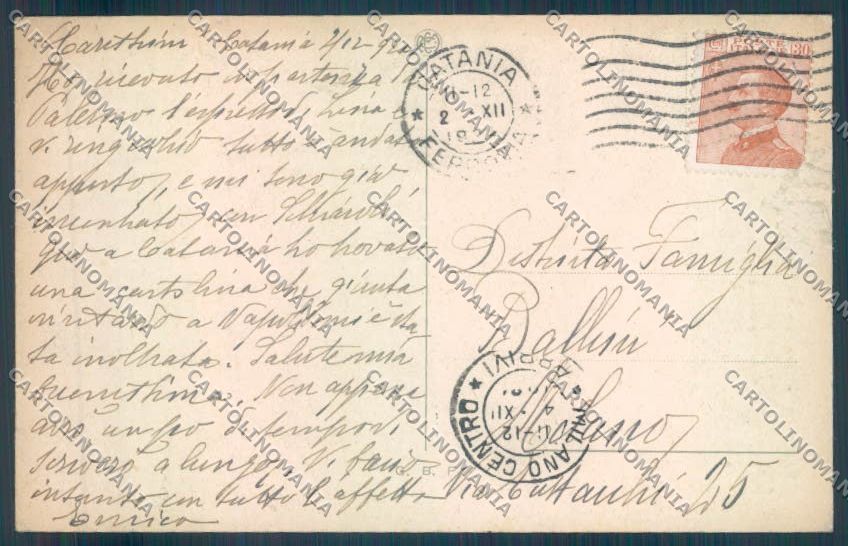 Carissimi Catania 2/12 92
Ho ricevuto in partenza da
Palermo l'espresso di Lina e
vi ringrazio tutto è andato
appunto, e mi sono già
incontrato con
Qui a Catania ho trovato
una cartolina che giunta
in ritardo a Napoli mi è sta
ta inoltrata. Salute mia
buonissima. Non appena
avrò un po di tempo vi
scriverò a lungo. Vi bacio
intanto con tutto l'affetto
Enrico
CATANIA
11-12
2 XII
FERROVIA
POSTE
30
Distinta Famiglia
Ballini
Milano
Via 25
MILANO CENTRO
ARRIVI
11-12
4 XII
G. B. P.
CARTOLINOMANIA